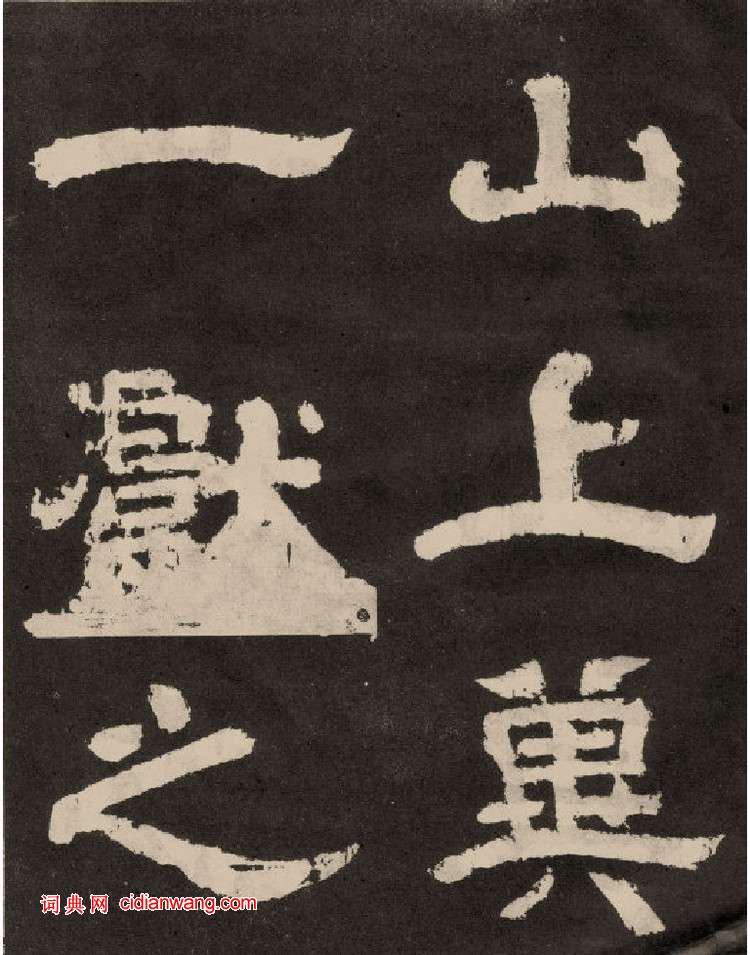 山上冀
一獻之
词典网 cidianwang.com